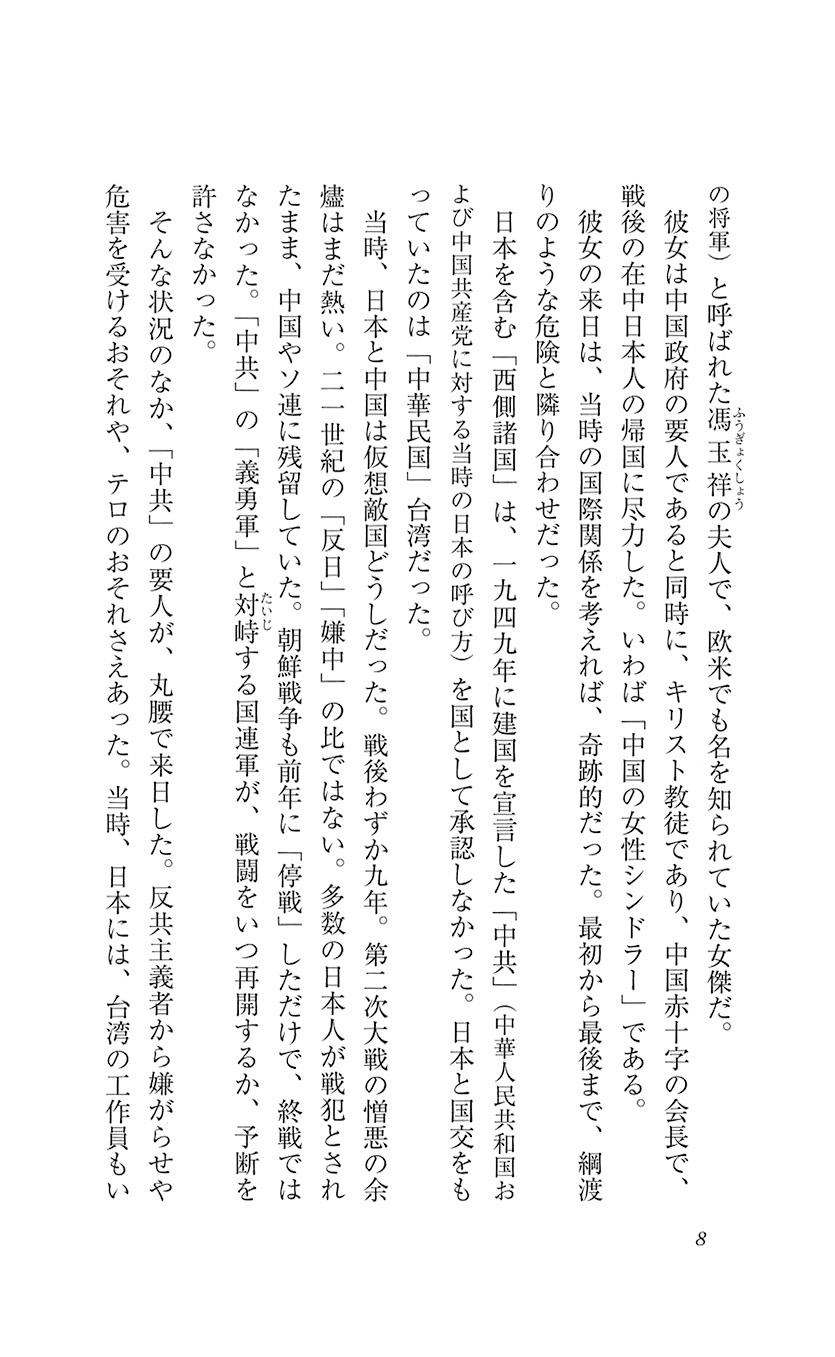 の将軍）と呼ばれた馮玉祥の夫人で、欧米でも名を知られていた女傑だ。
ふうぎょくしょう
彼女は中国政府の要人であると同時に、キリスト教徒であり、中国赤十字の会長で、
戦後の在中日本人の帰国に尽力した。いわば「中国の女性シンドラー」である。
彼女の来日は、当時の国際関係を考えれば、奇跡的だった。最初から最後まで、綱渡
りのような危険と隣り合わせだった。
日本を含む「西側諸国」は、一九四九年に建国を宣言した「中共」（中華人民共和国お
よび中国共産党に対する当時の日本の呼び方）を国として承認しなかった。日本と国交をも
っていたのは「中華民国」台湾だった。
当時、日本と中国は仮想敵国どうしだった。戦後わずか九年。第二次大戦の憎悪の余
燼はまだ熱い。二一世紀の「反日」「嫌中」の比ではない。多数の日本人が戦犯とされ
たまま、中国やソ連に残留していた。朝鮮戦争も前年に「停戦」しただけで、終戦では
なかった。「中共」の「義勇軍」と対峙する国連軍が、戦闘をいつ再開するか、予断を
たいじ
許さなかった。
そんな状況のなか、「中共」の要人が、丸腰で来日した。反共主義者から嫌がらせや
危害を受けるおそれや、テロのおそれさえあった。当時、日本には、台湾の工作員もい
8